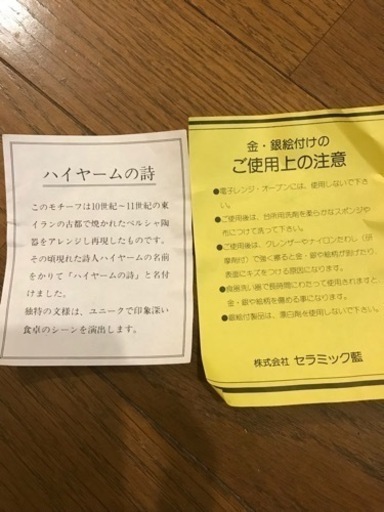 ハイヤームの詩
このモチーフは10世紀〜11世紀の東
イランの古都で焼かれたペルシャ陶
器をアレンジし再現したものです。
その頃現れた詩人ハイヤームの名前
をかりて『ハイヤームの詩』と名付
けました。
独特の文様は、ユニークで印象深い
食卓のシーンを演出します。
金・銀絵付けの
ご使用上の注意
●電子レンジ・オーブンには、使用しないで下さ
い。
●ご使用後は、台所用洗剤を柔らかなスポンジや
布につけて洗って下さい。
●ご使用後は、クレンザーやナイロンたわし(研
摩剤付)で強く擦ると金・銀や絵柄が剥げたり、
表面にキズをつける原因になります。
●食器洗い器で長時間にわたって使用されますと、
金・銀や絵柄を傷める事になります。
●銀絵付製品は、漂白剤を使用しないで下さい。
株式会社 セラミック藍